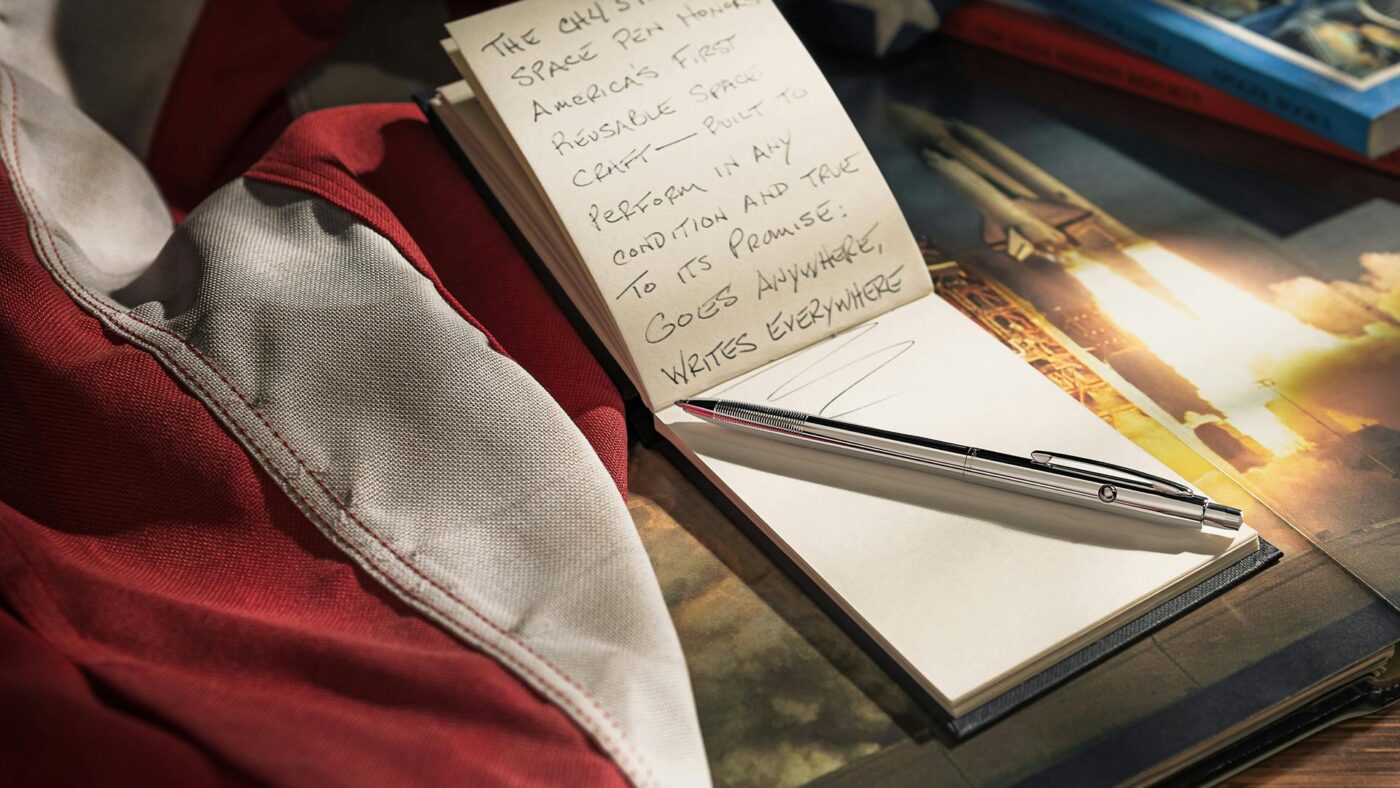 THE CH4 
SPACE PEN HONORS
AMERICA'S FIRST
REUSABLE SPACE-
CRAFT — BUILT TO
PERFORM IN ANY
CONDITION AND TRUE
TO ITS PROMISE:
GOES ANYWHERE,
WRITES EVERYWHERE